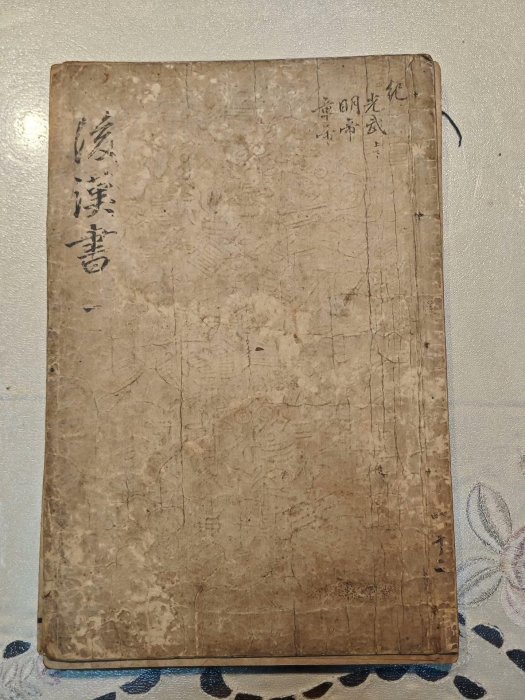 紀
光武 上下
明帝
章帝
後漢書 一